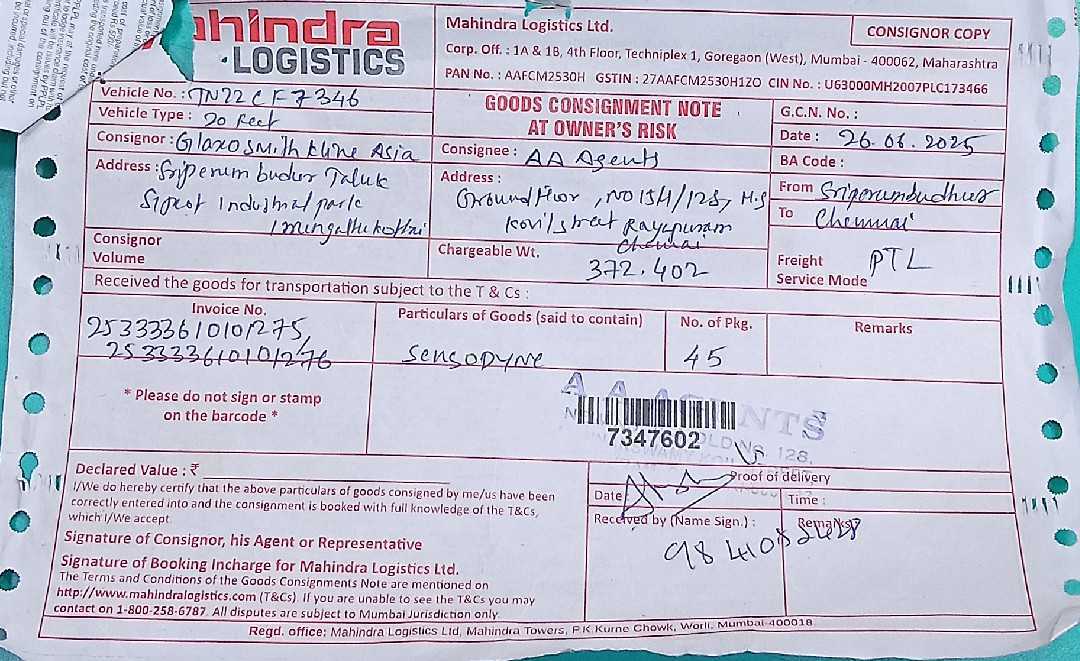 Mahindra
LOGISTICS
Mahindra Logistics Ltd.
CONSIGNOR COPY
Corp. Off. : 1A & 1B, 4th Floor, Techniplex 1, Goregaon (West), Mumbai - 400062, Maharashtra
PAN No. : AAFCM2530H GSTIN : 27AAFCM2530H1ZO CIN No. : U63000MH2007PLC173466
Vehicle No. : TN22CF7346
Vehicle Type : 20 Feet
GOODS CONSIGNMENT NOTE
AT OWNER'S RISK
G.C.N. No. :
Date : 26.06.2025
Consignor : Glaxosmith kline Asia
Consignee : AA Agents
BA Code :
Address : Sriperumbudur Taluk
Sipcot Industrial park
Address :
Ground Floor, NO 154/128, M.S
Kovil street Rayapuram
Chennai
From Sriperumbudhur
To Chennai
Consignor
Volume
Chargeable Wt.
372.402
Freight
Service Mode PTL
Received the goods for transportation subject to the T & Cs :
Invoice No.
Particulars of Goods (said to contain)
No. of Pkg.
Remarks
253333610101275,
253333610101276
SENSODYNE
45
* Please do not sign or stamp
on the barcode *
A A AGENTS
7347602
OLD No. 128,
Declared Value : ₹
I/We do hereby certify that the above particulars of goods consigned by me/us have been
correctly entered into and the consignment is booked with full knowledge of the T&Cs,
which I/We accept.
Signature of Consignor, his Agent or Representative
Signature of Booking Incharge for Mahindra Logistics Ltd.
The Terms and Conditions of the Goods Consignments Note are mentioned on
http://www.mahindralogistics.com (T&Cs). If you are unable to see the T&Cs you may
contact on 1-800-258-6787. All disputes are subject to Mumbai Jurisdiction only.
Proof of delivery
Date
Time :
Received by (Name Sign.) :
Remarks
Regd. office: Mahindra Logistics Ltd, Mahindra Towers, P.K Kurne Chowk, Worli, Mumbai-400018